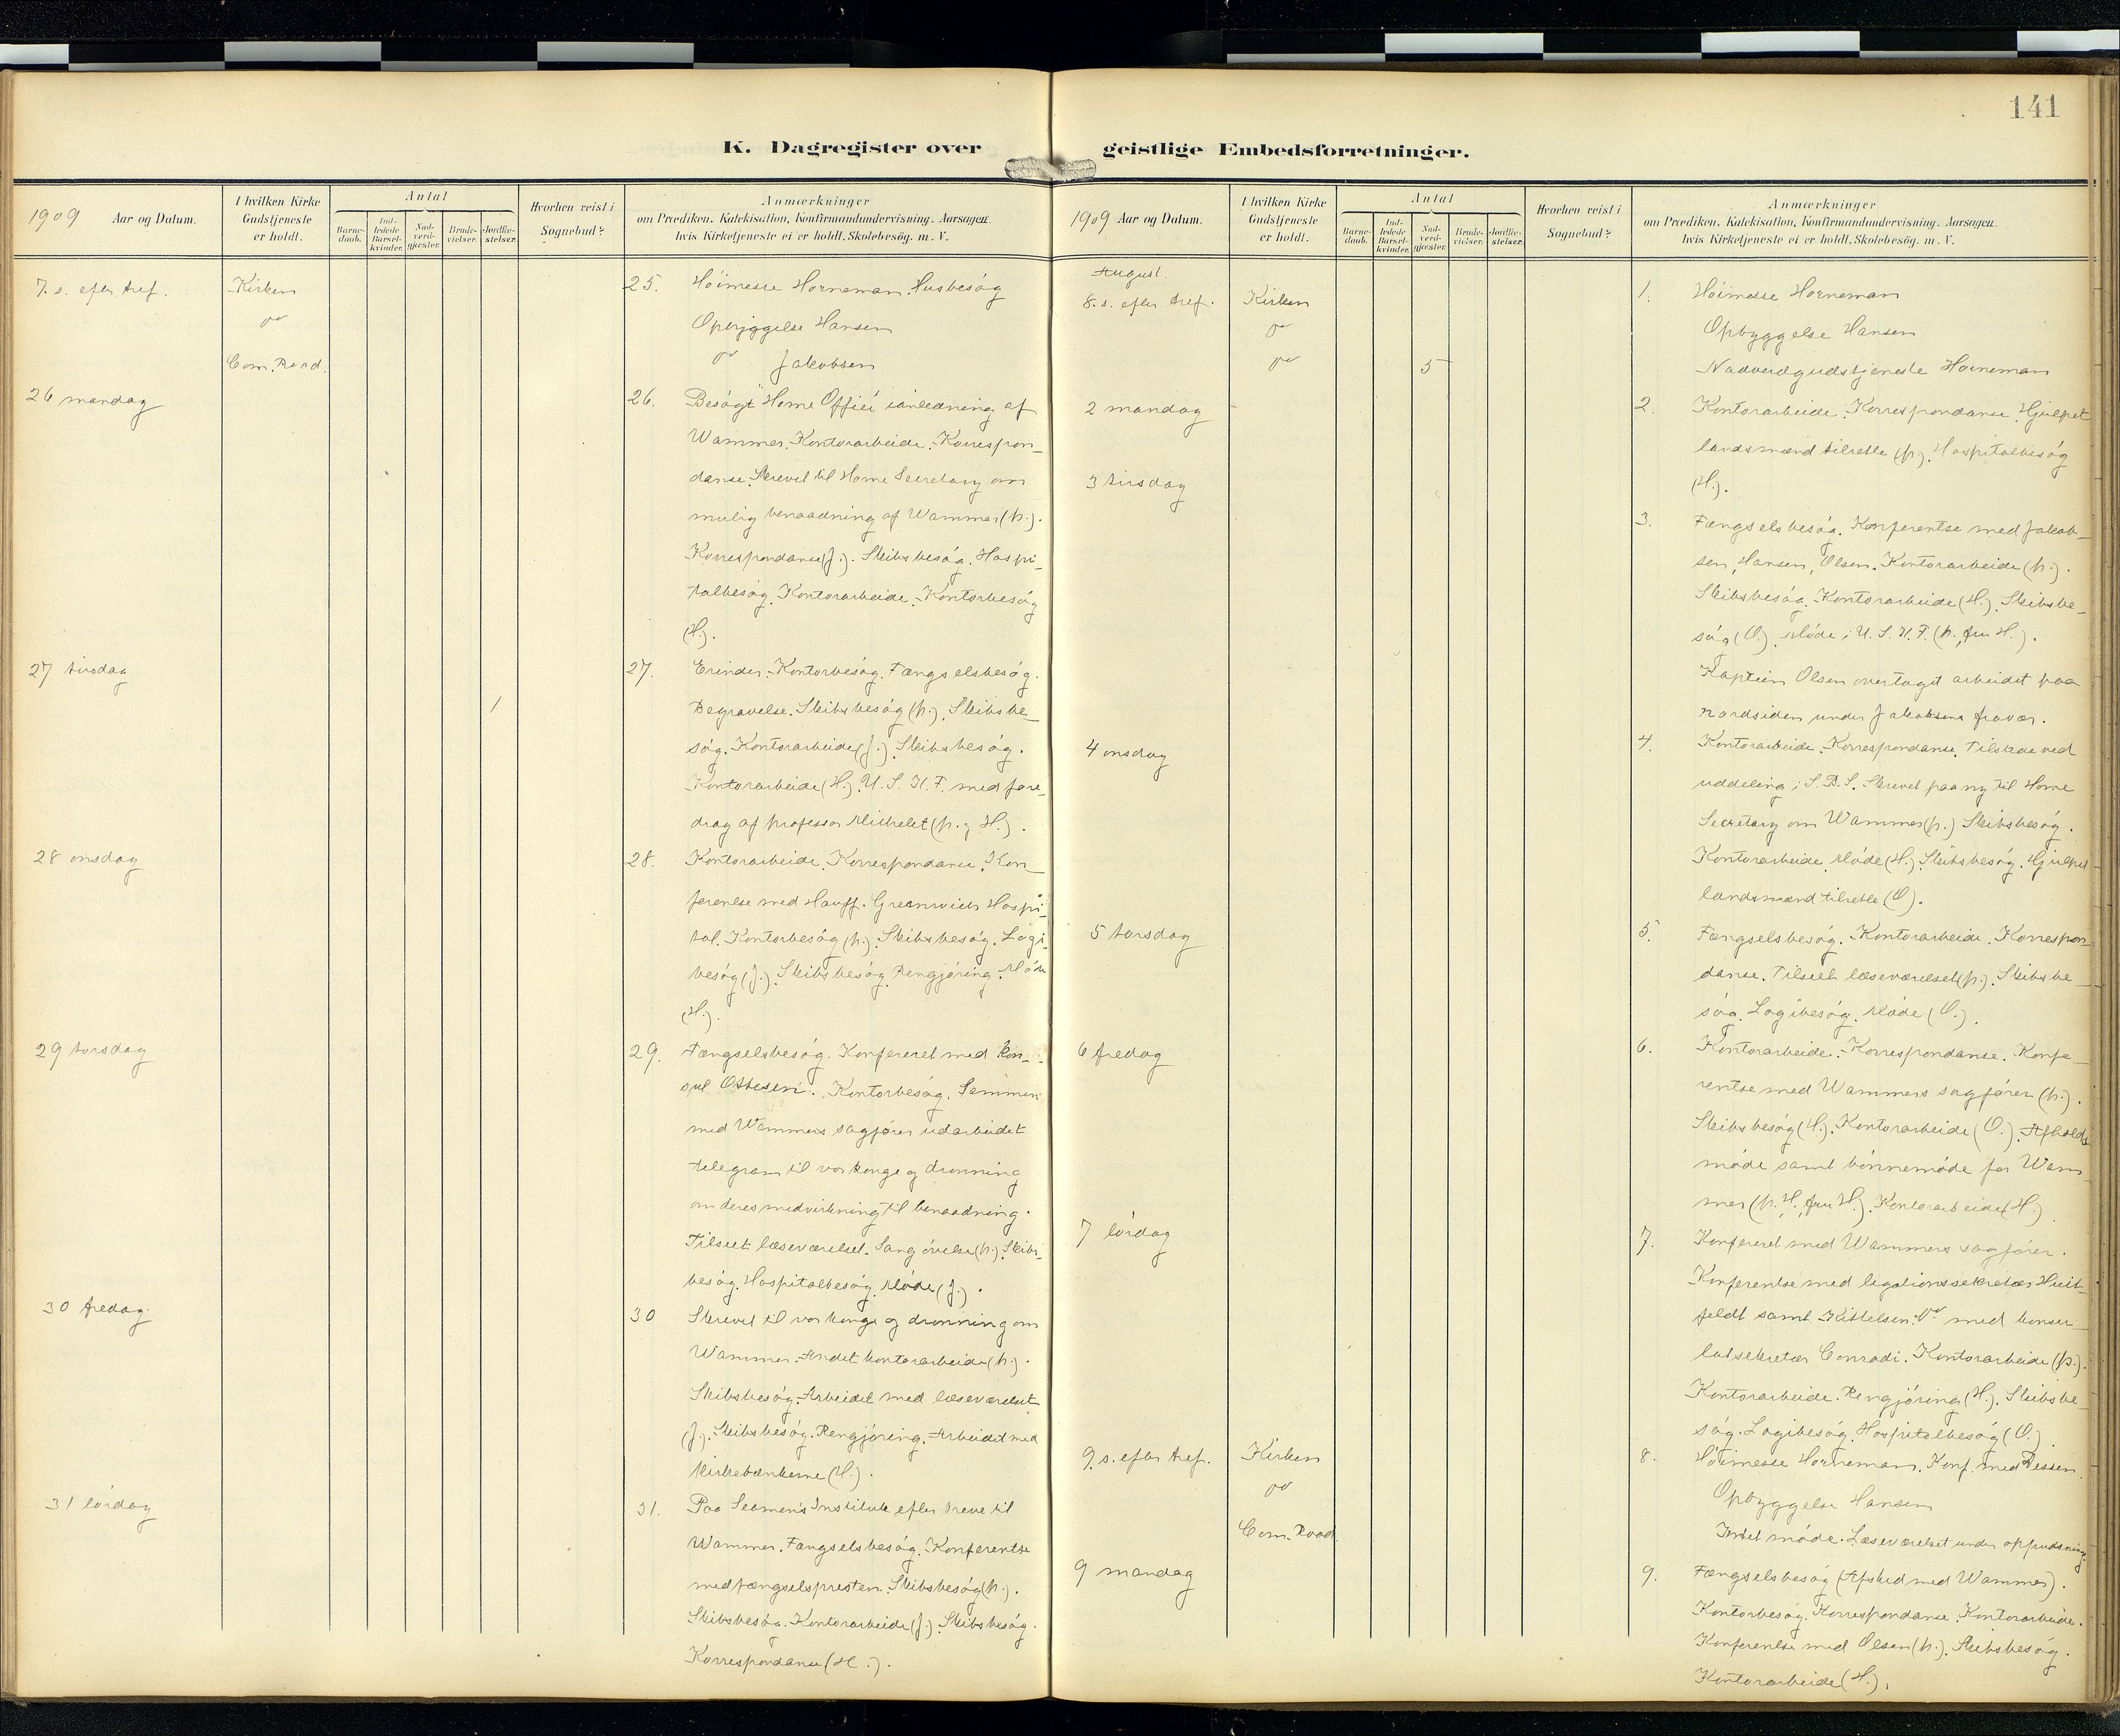 141
K. Dagregister over
1909 Aar og Datum.
I hvilken Kirke
Gudstjeneste
er holdt.
Antal
Barne-
daab.
Ind-
ledede
Barsel-
kvinder.
Nad-
verd-
gjæster.
Brude-
vielser.
Jordfæ-
stelser.
Hvorhen reist i
Sognebud?
Anmærkninger
om Prædiken, Katekisation, Konfirmandundervisning. Aarsagen,
hvis Kirketjeneste ei er holdt, Skolebesög, m. V.
7. s. efter tref. Kirken 25. Höimesse Horneman. Husbesög
do Opbyggelse Hansen
Com. Road. do Jakobsen
26 mandag 26. Besögt "Home Office" i anledning af
Wammer. Kontorarbeide. Korrespon-
danse. Skrevet til Home Secretary om
mulig benaadning af Wammer (p.).
Korrespondanse (J.). Skibsbesög. Hospi-
talbesög. Kontorarbeide. Kontorbesög
(H.).
27 tirsdag 27. Erinder. Kontorbesög. Fængselsbesög.
1 Begravelse. Skibsbesög (p.). Skibsbe-
sög. Kontorarbeide (J.). Skibsbesög.
Kontorarbeide (H.). U. S. K. F. med fore-
drag af professor Michelet (p. og H.).
28 onsdag 28. Kontorarbeide. Korrespondanse. Kon-
ferentse med Hauff. Greenwich Hospi-
tal. Kontorbesög (p.). Skibsbesög. Logi-
besög (J.). Skibsbesög. Rengjöring. Möde
(H.).
29 torsdag 29. Fængselsbesög. Konfereret med kon-
sul Ottesen. Kontorbesög. Sammen
med Wammers sagförer udarbeidet
telegram til vor konge og dronning
om deres medvirkning til benaadning.
Tilseet læseværelset. Sangövelse (p.). Skibs-
besög. Hospitalbesög. Möde (J.).
30 fredag 30 Skrevet til vor konge og dronning om
Wammer. Andet kontorarbeide (p.).
Skibsbesög. Arbeidet med læseværelset
(J.). Skibsbesög. Rengjöring. Arbeidet med
kirkebænkerne (H.).
31 lördag 31. Paa Seamen's Institute efter breve til
Wammer. Fængselsbesög. Konferentse
med fængselspresten. Skibsbesög (p.).
Skibsbesög. Kontorarbeide (J.). Skibsbesög.
Korrespondanse (H.).
geistlige Embedsforretninger.
1909 Aar og Datum.
I hvilken Kirke
Gudstjeneste
er holdt.
Antal
Barne-
daab.
Ind-
ledede
Barsel-
kvinder.
Nad-
verd-
gjæster.
Brude-
vielser.
Jordfæ-
stelser.
Hvorhen reist i
Sognebud?
Anmærkninger
om Prædiken, Katekisation, Konfirmandundervisning. Aarsagen,
hvis Kirketjeneste ei er holdt, Skolebesög, m. V.
August.
8. s. efter tref. Kirken 1. Höimesse Horneman
do Opbyggelse Hansen
do 5 Nadverdgudstjeneste Horneman
2 mandag 2. Kontorarbeide. Korrespondanse. Hjulpet
landsmænd tilrette (p.). Hospitalbesög
(H.).
3 tirsdag 3. Fængselsbesög. Konferentse med Jakob-
sen, Hansen, Olsen. Kontorarbeide (p.).
Skibsbesög. Kontorarbeide (H.). Skibsbe-
sög (O.). Möde i U. S. K. F. (p., fru H.).
Kaptein Olsen overtaget arbeidet paa
nordsiden under Jakobsens fravær.
4 onsdag 4. Kontorarbeide. Korrespondanse. Tilstede ved
uddeling i S. B. S. Skrevet paa ny til Home
Secretary om Wammer (p.) Skibsbesög.
Kontorarbeide. Möde (H.). Skibsbesög. Hjulpet
landsmænd tilrette (O).
5 torsdag 5. Fængselsbesög. Kontorarbeide. Korrespon-
danse. Tilseet læseværelset (p.). Skibsbe-
sög. Logibesög. Möde (O.).
6 fredag 6. Kontorarbeide. Korrespondanse. Konfe-
rentse med Wammers sagförer (p.).
Skibsbesög (H.). Kontorarbeide (O.). Afholdt
möde samt bönnemöde for Wam-
mer (p. H., fru H.). Kontorarbeide (H.)
7 lördag 7. Konfereret med Wammers sagförer.
Konferentse med legationssekretær Huit-
feldt samt Kittelsen. do med konsu-
latsekretær Conradi. Kontorarbeide (p.).
Kontorarbeide. Rengjöring (H.). Skibsbe-
sög. Logibesög. Hospitalbesög (O.).
9. s. efter tref. Kirken 8. Höimesse Horneman. Konf. med
do Opbyggelse Hansen
Com. Road Intet möde. Læseværelset under oppudsning.
9 mandag 9. Fængselsbesög (Afsked med Wammer).
Kontorbesög. Korrespondanse. Kontorarbeide.
Konferentse med Olsen (p.). Skibsbesög.
Kontorarbeide (H.).